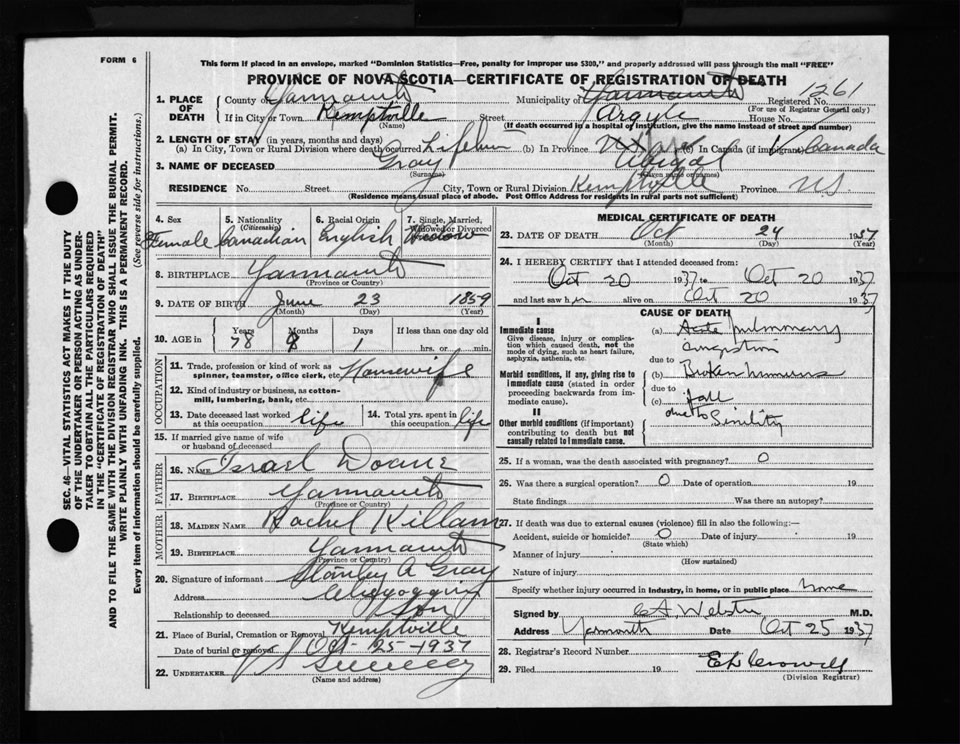 FORM 6
This form if placed in an envelope, marked "Dominion Statistics—Free, penalty for improper use $300," and properly addressed will pass through the mail "FREE"
PROVINCE OF NOVA SCOTIA—CERTIFICATE OF REGISTRATION OF DEATH
1261
1. PLACE OF DEATH
County of Yarmouth Municipality of Yarmouth Argyle Registered No.
(For use of Registrar General only)
If in City or Town Kemptville Street House No.
(Name) (If death occurred in a hospital or institution, give the name instead of street and number)
2. LENGTH OF STAY (in years, months and days)
(a) In City, Town or Rural Division where death occurred Lifetime (b) In Province (c) In Canada (if immigrant) Canada
3. NAME OF DECEASED Gray Abigal
(Surname) (Given name or names)
RESIDENCE No. Street City, Town or Rural Division Kemptville Province N.S.
(Residence means usual place of abode. Post Office Address for residents in rural parts not sufficient)
4. Sex Female
5. Nationality (Citizenship) Canadian
6. Racial Origin English
7. Single, Married, Widowed or Divorced Widow
8. BIRTHPLACE Yarmouth
(Province or Country)
9. DATE OF BIRTH June 23 1859
(Month) (Day) (Year)
10. AGE in Years Months Days If less than one day old
78 1 hrs. or min.
OCCUPATION
11. Trade, profession or kind of work as spinner, teamster, office clerk, etc. Housewife
12. Kind of industry or business, as cotton-mill, lumbering, bank, etc.
13. Date deceased last worked at this occupation life
14. Total yrs. spent in this occupation life
15. If married give name of wife or husband of deceased
FATHER
16. NAME Israel Doane
17. BIRTHPLACE Yarmouth
(Province or Country)
MOTHER
18. MAIDEN NAME Rachel Killam
19. BIRTHPLACE Yarmouth
(Province or Country)
20. Signature of informant Stanley A Gray
Address
Relationship to deceased Son
21. Place of Burial, Cremation or Removal Kemptville
Date of burial or removal Oct-25-1937
22. UNDERTAKER
(Name and address)
MEDICAL CERTIFICATE OF DEATH
23. DATE OF DEATH Oct 24 1937
(Month) (Day) (Year)
24. I HEREBY CERTIFY that I attended deceased from:
Oct 20 1937 to Oct 20 1937
and last saw her alive on Oct 20 1937
CAUSE OF DEATH
I
Immediate cause
Give disease, injury or complication which caused death, not the mode of dying, such as heart failure, asphyxia, asthenia, etc.
(a) Acute pulmonary congestion
due to
Morbid conditions, if any, giving rise to immediate cause (stated in order proceeding backwards from immediate cause).
(b) Broken humerus
due to
(c) fall
due to Senility
II
Other morbid conditions (if important) contributing to death but not causally related to immediate cause.
25. If a woman, was the death associated with pregnancy? 0
26. Was there a surgical operation? 0 Date of operation 19
State findings Was there an autopsy?
27. If death was due to external causes (violence) fill in also the following:—
Accident, suicide or homicide? 0 Date of injury 19
(State which)
Manner of injury
(How sustained)
Nature of injury
Specify whether injury occurred in industry, in home, or in public place home
Signed by C.A. Webster M.D.
Address Yarmouth Date Oct 25 1937
28. Registrar's Record Number
29. Filed 19 Crowell
(Division Registrar)
SEC. 46—VITAL STATISTICS ACT MAKES IT THE DUTY
OF THE UNDERTAKER OR PERSON ACTING AS UNDER-
TAKER TO OBTAIN ALL THE PARTICULARS REQUIRED
IN THE "CERTIFICATE OF REGISTRATION OF DEATH"
AND TO FILE THE SAME WITH THE DIVISION REGISTRAR WHO SHALL ISSUE THE BURIAL PERMIT.
WRITE PLAINLY WITH UNFADING INK. THIS IS A PERMANENT RECORD.
Every item of information should be carefully supplied. (See reverse side for instructions.)